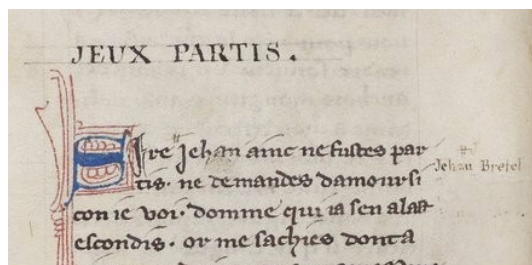 JEUX PARTIS.
Sire Jehan ainc ne fustes par
tis. ne demandes damour si
con ie voi. domme qui ia sen alast
escondis. or me sachies dont a
Jehan Bretel